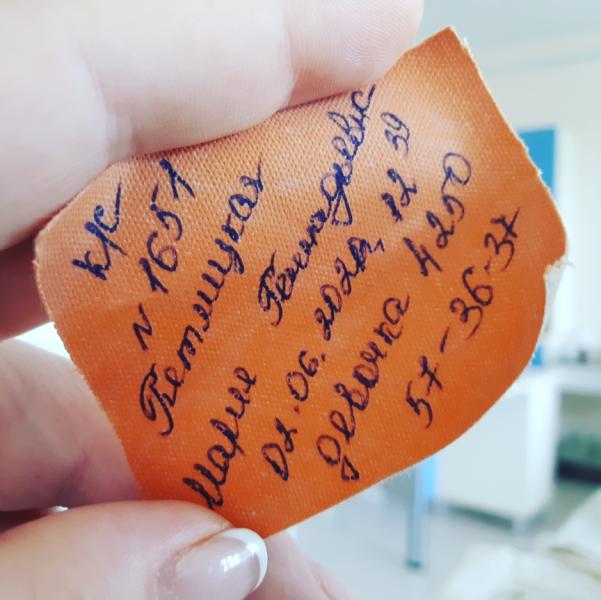 к/с
N 1651
Бетлицкая
Мария Геннадьевна
02.06.2020г. 12 39
девочка 4250
57-36-37